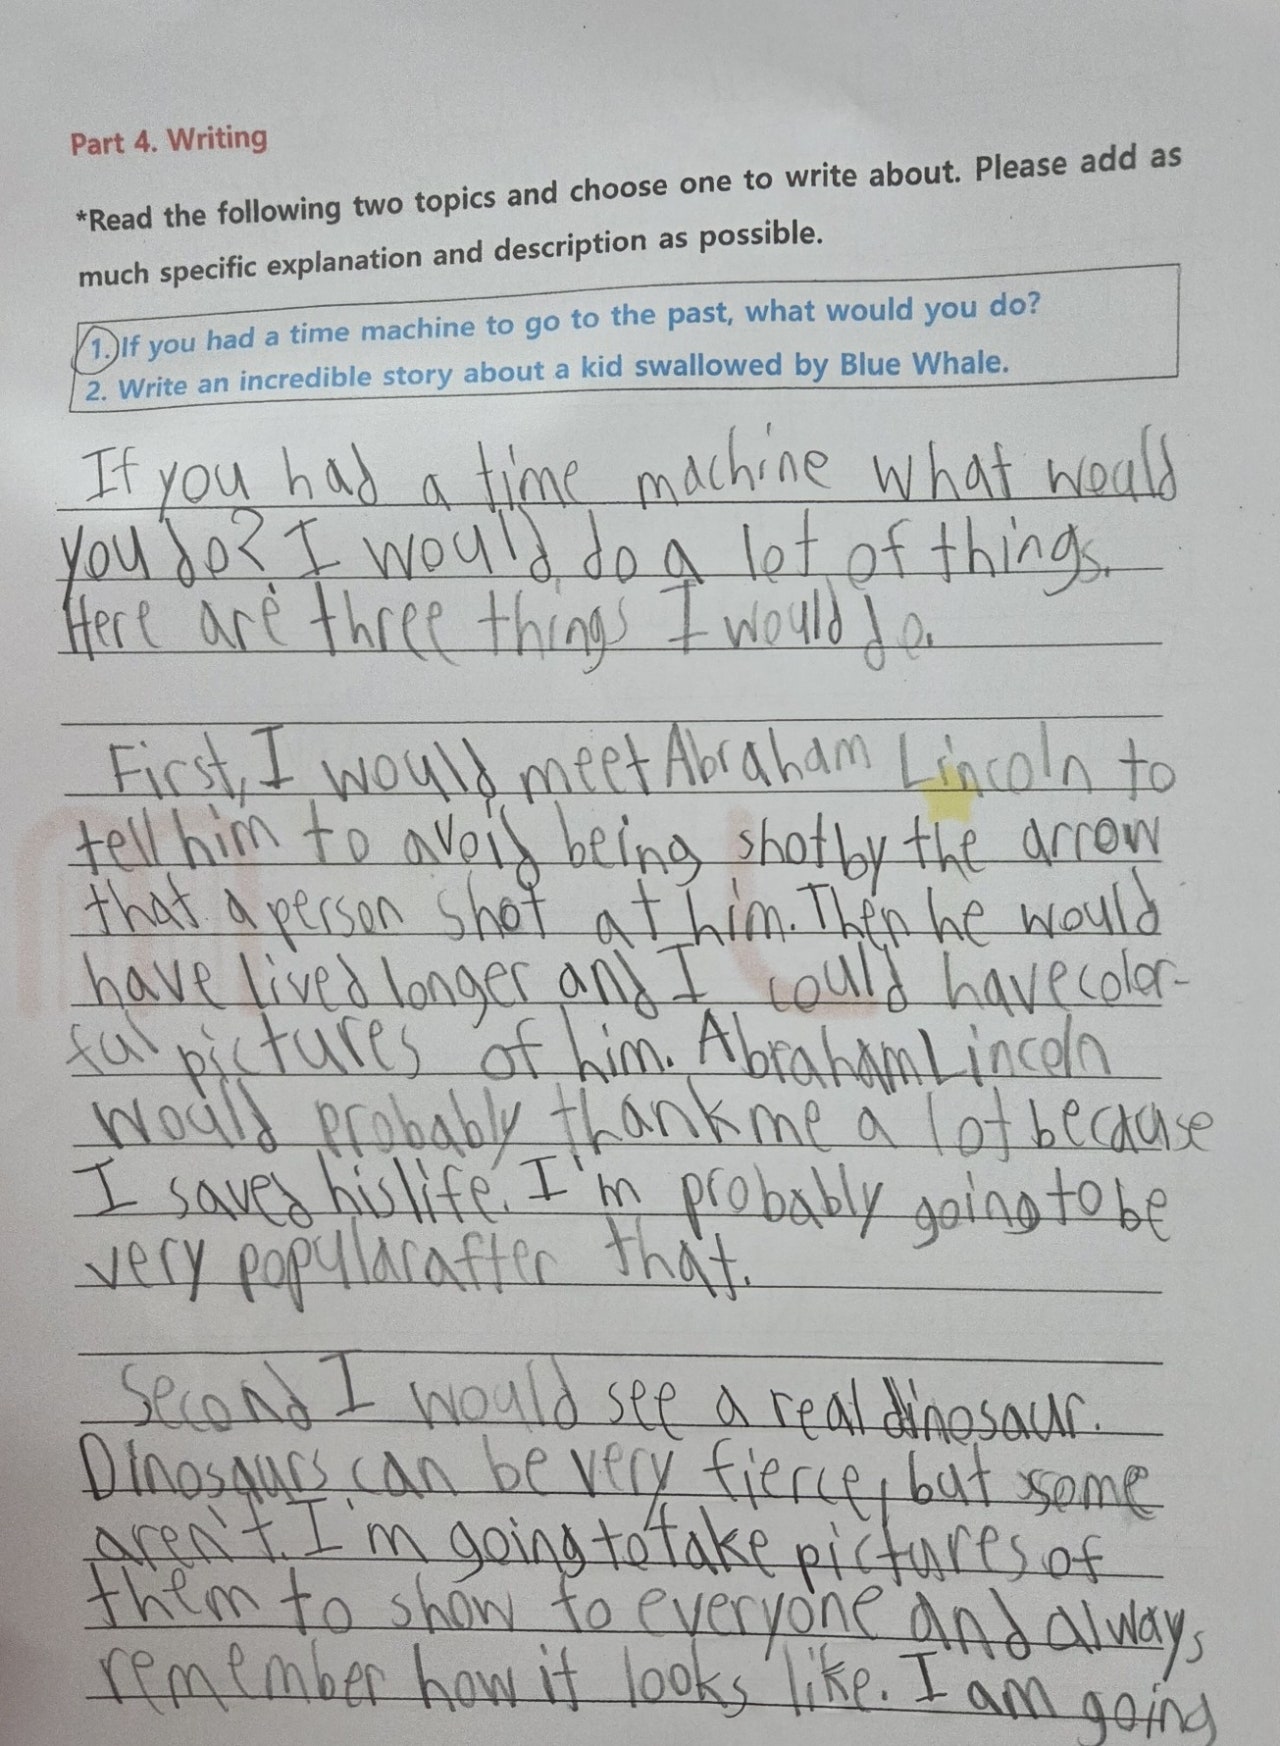 Part 4. Writing
*Read the following two topics and choose one to write about. Please add as
much specific explanation and description as possible.
1. If you had a time machine to go to the past, what would you do?
2. Write an incredible story about a kid swallowed by Blue Whale.
If you had a time machine what would
you do? I would do a lot of things.
Here are three things I would do.
First, I would meet Abraham Lincoln to
tell him to avoid being shot by the arrow
that a person shot at him. Then he would
have lived longer and I could have color-
ful pictures of him. Abraham Lincoln
would probably thank me a lot because
I saved his life. I'm probably going to be
very popular after that.
Second I would see a real dinosaur.
Dinosaurs can be very fierce, but some
aren't. I'm going to take pictures of
them to show to everyone and always
remember how it looks like. I am going